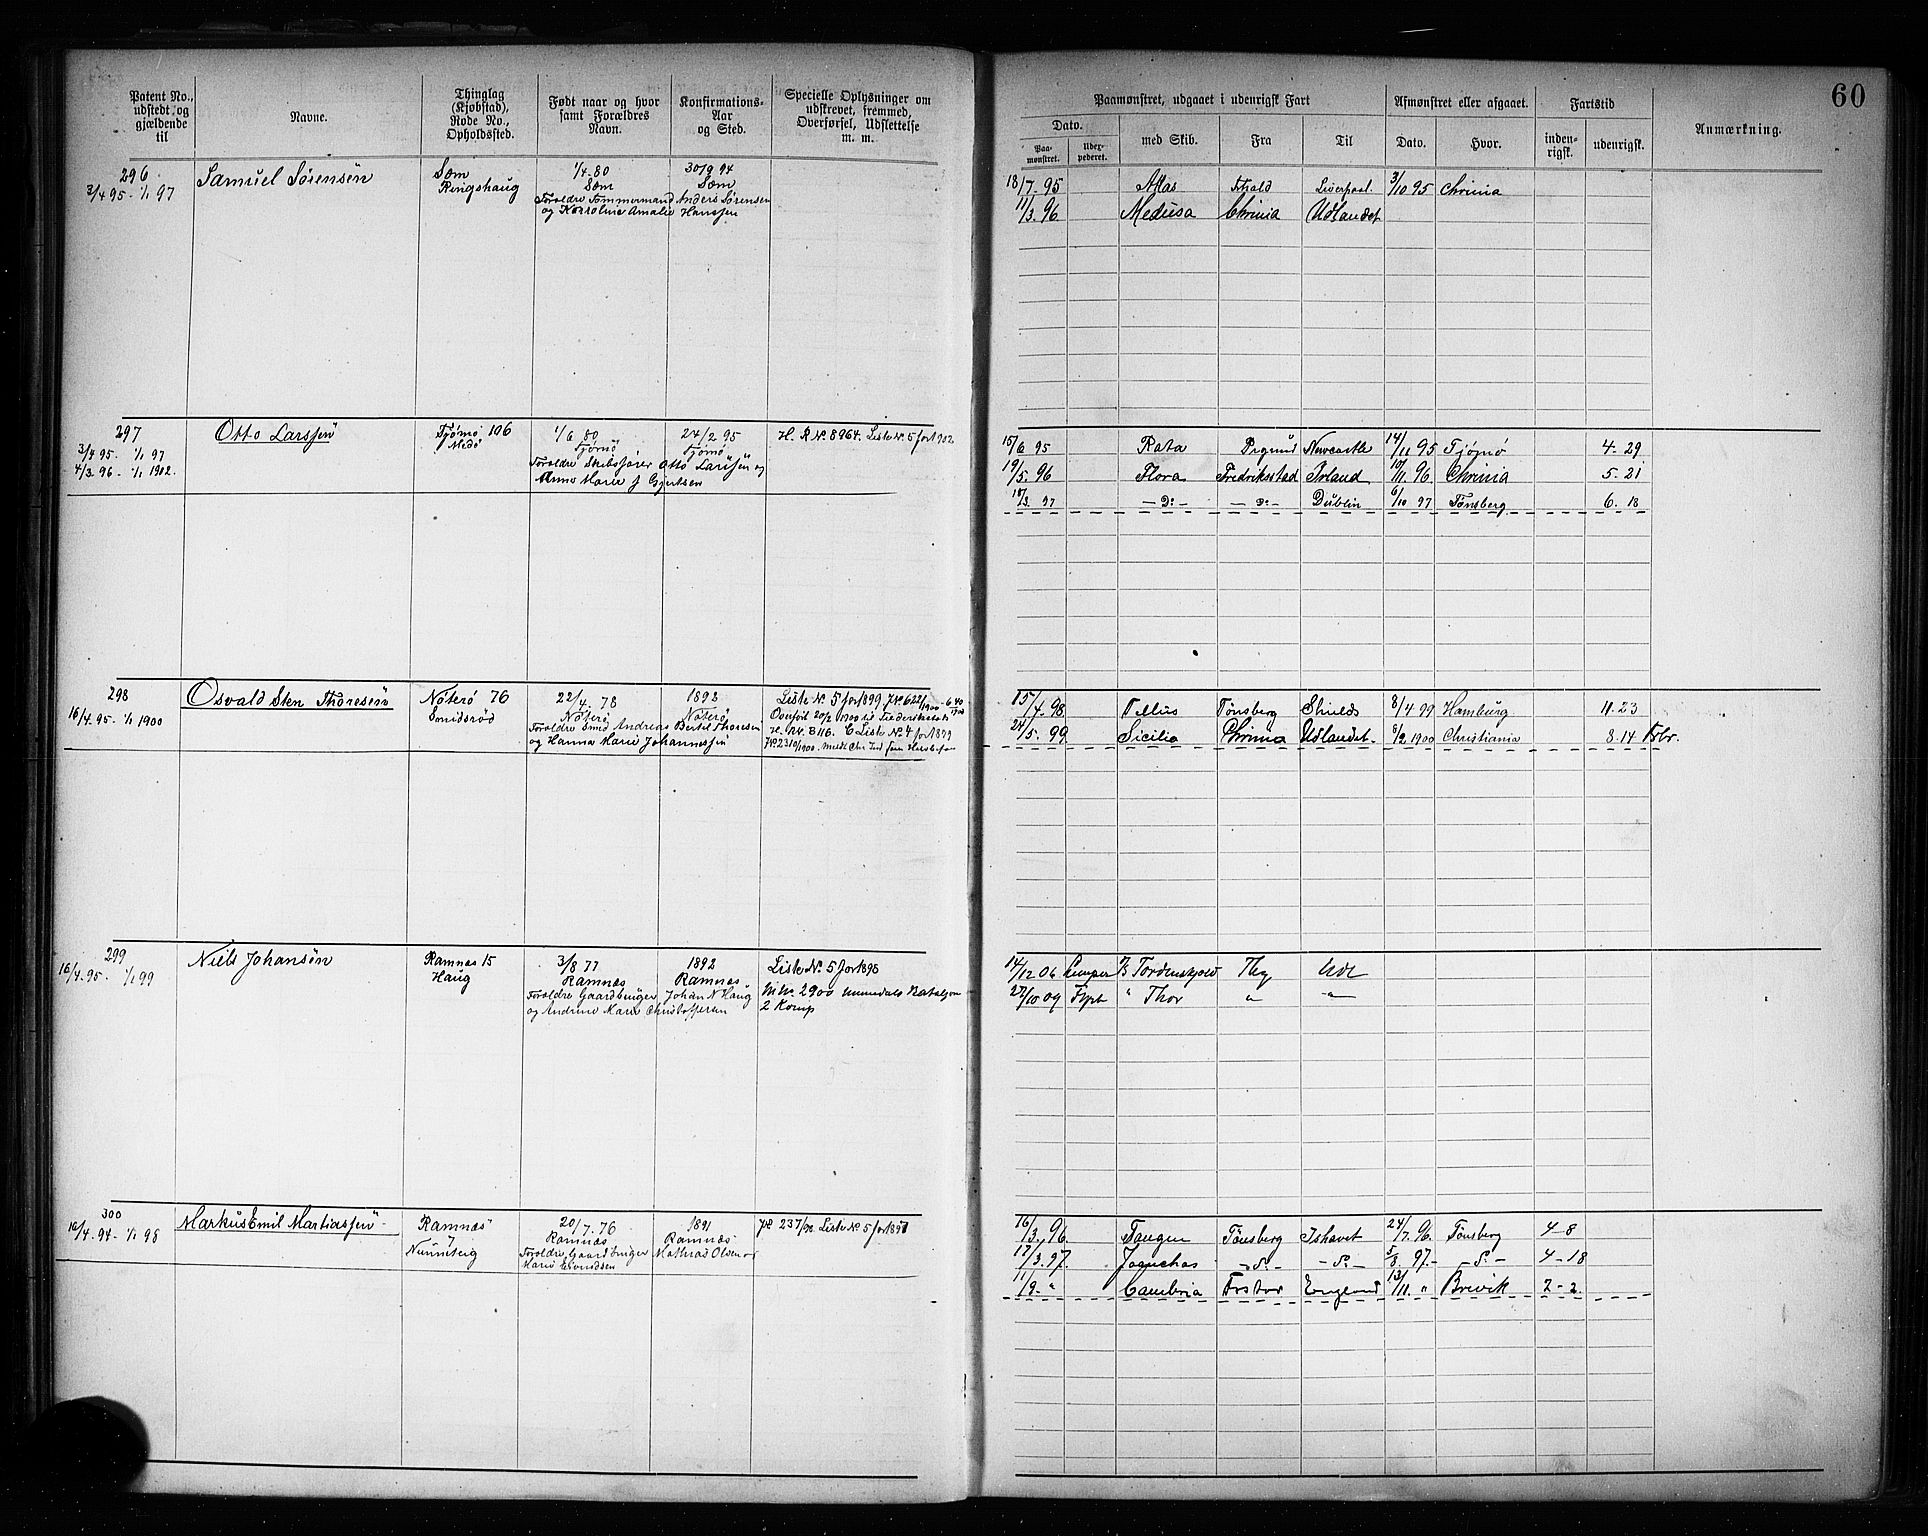 60
Patent No., udstedt og gjældende til
Navne.
Thinglag (Kjøbstad), Rode No., Opholdssted.
Født naar og hvor samt Forældres Navn.
Konfirmations-Aar og Sted.
Specielle Oplysninger om udskrevet, fremmed, Overførsel, Udslettelse m. m.
Paamønstret, udgaaet i udenrigsk Fart
Dato.
Paa-mønstret.
Udex-pederet.
med Skib.
Fra
Til
Afmønstret eller afgaaet.
Dato.
Hvor.
Fartstid
inden-rigsk.
udenrigsk.
Anmærkning.
296
3/4 95 - 1/1 97
Samuel Sørensen
Sæm
Ringshaug
1/4-80
Sæm
30/9 94
Sæm
Foreldre Tømmermand Anders Sørensen
og Karoline Amalie Hansen
18/7-95 Atlas Fhald Liverpool 3/10 95 Chrinia
11/3. 96 Medusa Chrinia Udlandet
297
3/4 95. 1/1 97
4/3 96 - 1/1 1902
Otto Larssen
Tjømø 106
Medø
1/6 80
Tjømø
24/2 95
Tjømø
Foreldre Skibsfører Otto Larssen og
Anne Marie f Gjertsen
H. R No. 8964. Liste No. 5 for 1902
15/6 95 Rata Drgsund Newcastle 14/11 95 Tjømø 4-29
19/5. 96 Flora Fredriksstad Irland 10/11 96 Chrinia 5-21
18/3. 97 - Do - - Do - Dublin 6/10 97 Tønsberg 6. 18
298
16/4. 95. 1/1 1900
Osvald Sten Thoresen
Nøterø 76
Smidsrød
22/4. 78
Nøterø
1893
Nøterø
Foreldre Smed Andreas Bertel Thoresen
og Hanna Marie Johannessen
Liste No. 5 for 1899 J No 622/1900 - 640/1900
Overført 20/2 1900 til Frederikstads
H. No. 8116. C Liste No. 4 for 1899
J No 2310/1900
15/4. 98 Tellus Tønsberg Shields 8/4 99 Hamburg 11. 23
24/5. 99 Sicilia Chrinia Udlandet 8/2 1900 Christiania 8. 14
299
16/4. 95. 1/1 99
Niels Johansen
Ramnes 15
Haug
3/8 77
Ramnes
1892
Ramnes
Foreldre Gaardbruger Johan N Haug
og Andrine Marie Christoffersen
Liste No. 5 for 1898
M. No. 2900 Numedals Bataljon
2 Komp
14/12 06 Kemper Tordenskjold Tbg Udl
27/10 09 " Thor " "
300
16/4. 94 - 1/1 98
Markus Emil Martiassen
Ramnes
7
20/7. 76
Ramnes
1891
Ramnes
Foreldre Gaardbruger Mathias Olsen og
Marie Evindsen
J No 237/98 Liste No. 5 for 1897
16/3. 96 Haugen Tønsberg Ishavet 24/7. 96 Tønsberg 4-8
17/3. 97. - do - - do - 5/8. 97. - do - 4-18
11/9. " Cambria England 13/11. " Brevik 2-2